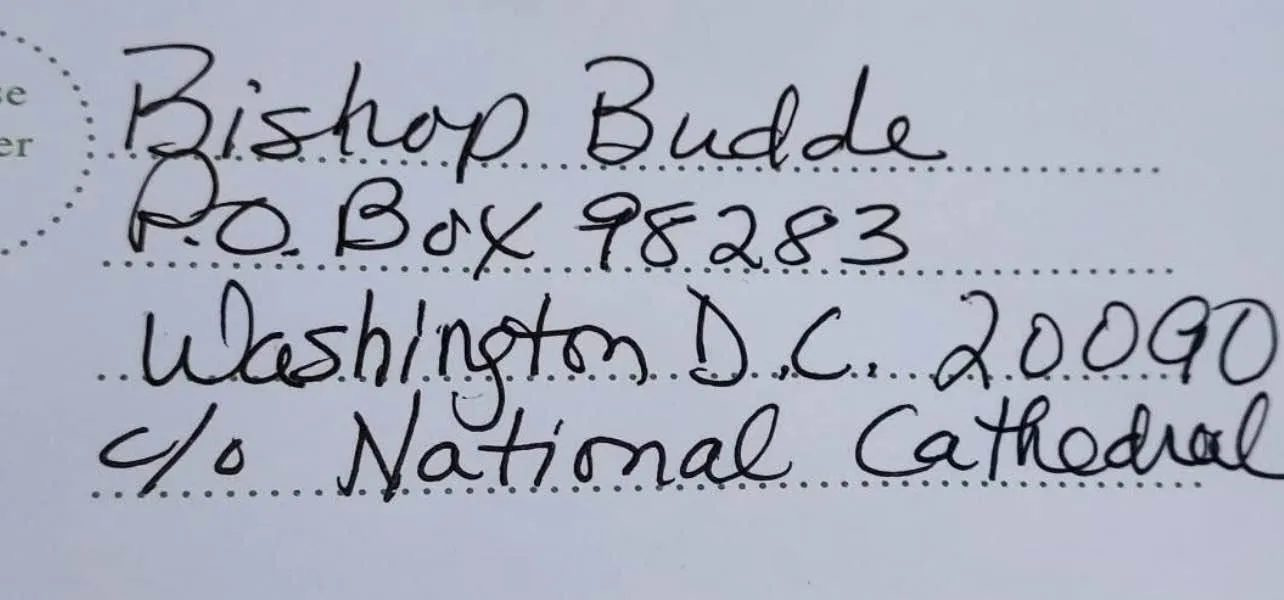 se
er
Bishop Budde
P.O. Box 98283
Washington D.C. 20090
c/o National Cathedral